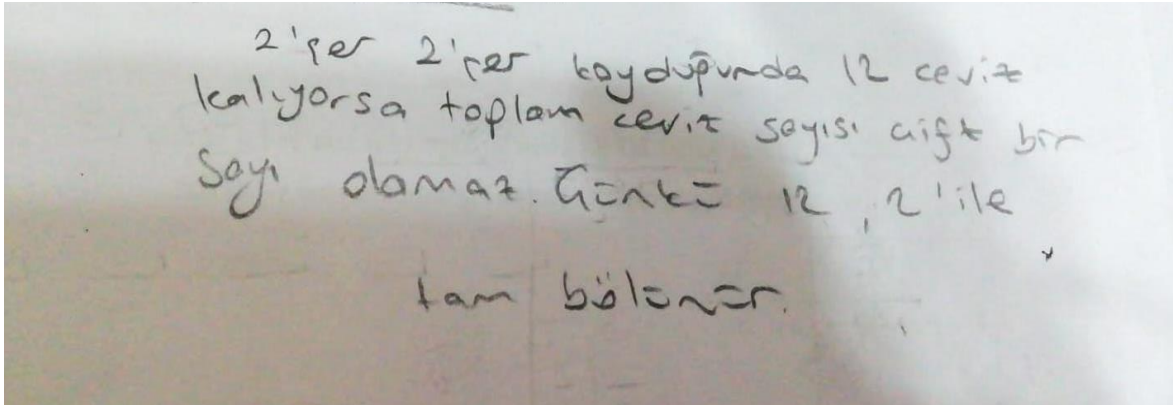 2'şer 2'şer koyduğunda 12 ceviz
kalıyorsa toplam ceviz sayısı çift bir
sayı olamaz. Çünkü 12, 2'ile
tam bölünür.